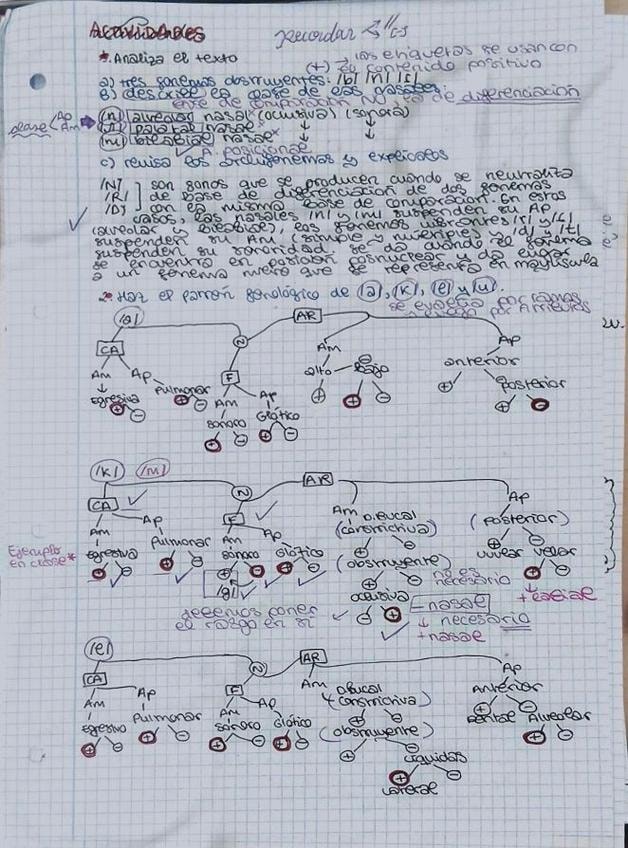 Actividades
recordar
*. Analiza el texto
(+) → las etiquetas se usan con
su contenido positivo
a) tres fonemas obstruyentes: /b/ /n/ /s/
b) describe la base de las nasales
base de comparación NO la de diferenciación
clase < Ap
Am
/n/ alveolar nasal (oclusiva) (sonora)
palatal nasal
/m/ bilabial nasal
A. posicional
c) revisa los archifonemas y explícalos
/N/ son fonos que se producen cuando se neutraliza
/R/ la base de diferenciación de dos fonemas
/D/ con la misma base de comparación. En estos
casos, las nasales /n/ y /m/ suspenden su Ap
(alveolar y bilabial), los fonemas vibrantes /r/ y /r̄/
suspenden su Am (simple y múltiple) y /d/ y /t/
suspenden su sonoridad. Se da cuando el fonema
se encuentra en posición posnuclear y da lugar
a un fonema nuevo que se representa en mayúscula
2º Haz el patrón fonológico de /a/, /k/, /l/ y /u/.
se evalúa por ramas
/a/ AR
CA N Am Ap
Am Ap F alto bajo anterior
egresiva pulmonar Am Ap + posterior
+ - + - sonoro Glótico + - + -
+ - + -
/k/ /m/ AR
CA N Am Ap
Am Ap F bucal (posterior)
Ejemplo
en clase*
egresiva pulmonar Am Ap (constrictiva) uvular velar
+ - + - sonoro Glótico + - + -
+ - + - (obstruyente) no es
necesario
/g/ oclusiva = nasal
debemos poner
el rasgo en sí
+ - necesario
+ nasal
/l/ AR
CA N Am Ap
Am Ap F bucal Anterior
egresivo pulmonar Am Ap (constrictiva) + -
+ - + - sonoro Glótico + - Dental Alveolar
+ - + - (obstruyente) + -
+ - líquidas
+ -
lateral